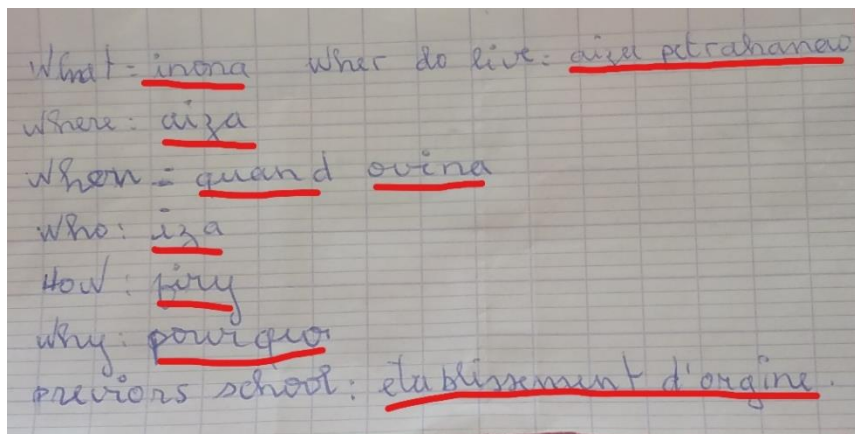 What = inona wher do live: aiza petrahanao
where: aiza
when = quand ovina
who: iza
How: firy
why: pourquoi
previors school: etablissement d'orgine.